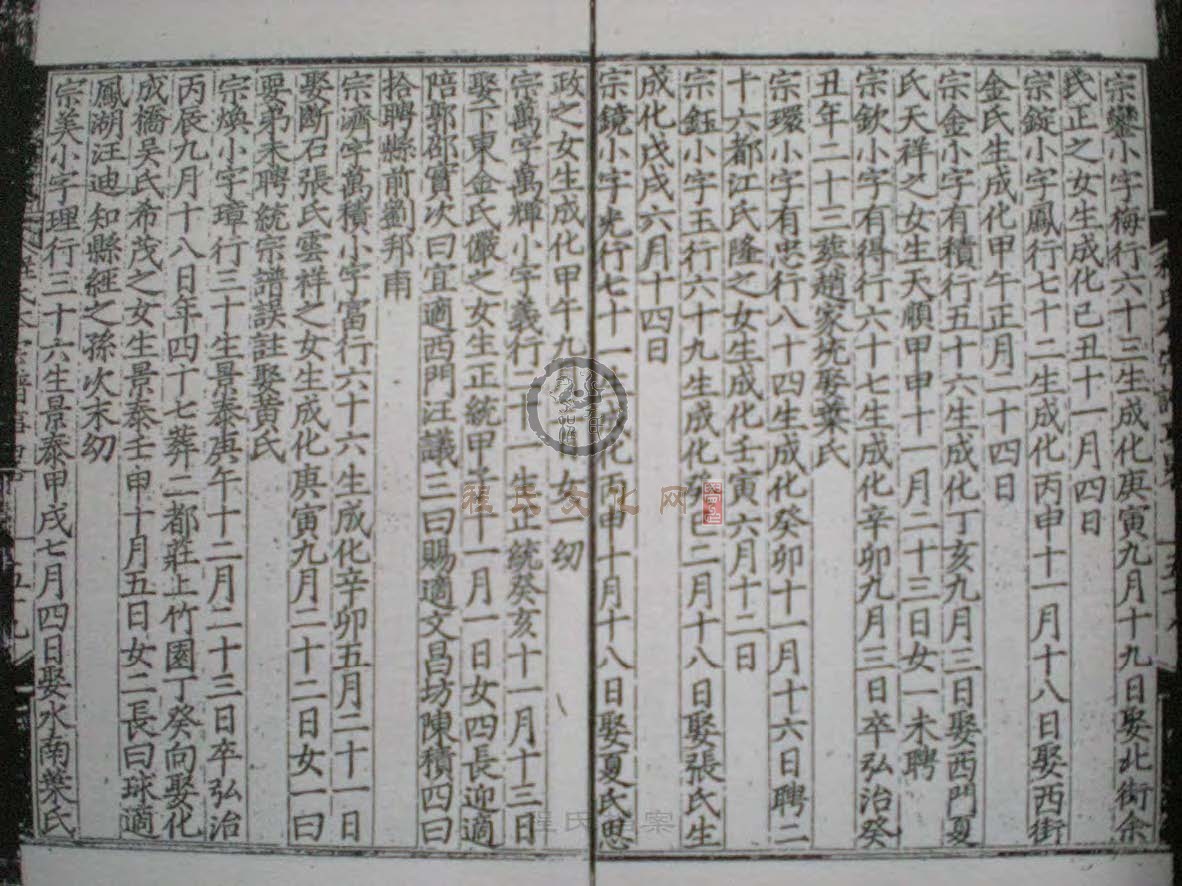 宗鑾小字梅行六十三生成化庚寅九月十九日娶北街余
氏正之女生成化己丑十一月四日
宗錠小字鳳行七十二生成化丙申十一月十八日娶西街
金氏生成化甲午正月二十四日
宗金小字有積行五十六生成化丁亥九月三日娶西門夏
氏天祥之女生天順甲申十一月二十三日女一未聘
宗欽小字有得行六十七生成化辛卯九月三日卒弘治癸
丑年二十三葬趙家坑娶葉氏
宗環小字有忠行八十四生成化癸卯十一月十六日聘二
十六都江氏隆之女生成化壬寅六月十二日
宗鈺小字玉行六十九生成化癸巳二月十八日娶張氏生
成化戊戌六月十四日
宗鏡小字光行七十一生成化丙申十月十八日娶夏氏思
政之女生成化甲午九月 日女一幼
宗萬字萬輝小字義行二十一生正統癸亥十一月十三日
娶下東金氏儼之女生正統甲子十一月一日女四長迎適
陪郭邵實次曰宜適西門汪議三曰賜適文昌坊陳積四曰
拾聘縣前劉邦甫
宗濟字萬積小字富行六十六生成化辛卯五月二十一日
娶斷石張氏雲祥之女生成化庚寅九月二十二日女一曰
要弟未聘統宗譜誤註娶黃氏
宗煥小字璋行三十生景泰庚午十二月二十三日卒弘治
丙辰九月十八日年四十七葬二都莊上竹園丁癸向娶化
成橋吴氏希茂之女生景泰壬申十月五日女二長曰球適
鳳湖汪迪知縣經之孫次末幼
宗美小字理行三十六生景泰甲戌七月四日娶水南葉氏
程氏文化网
程氏 案